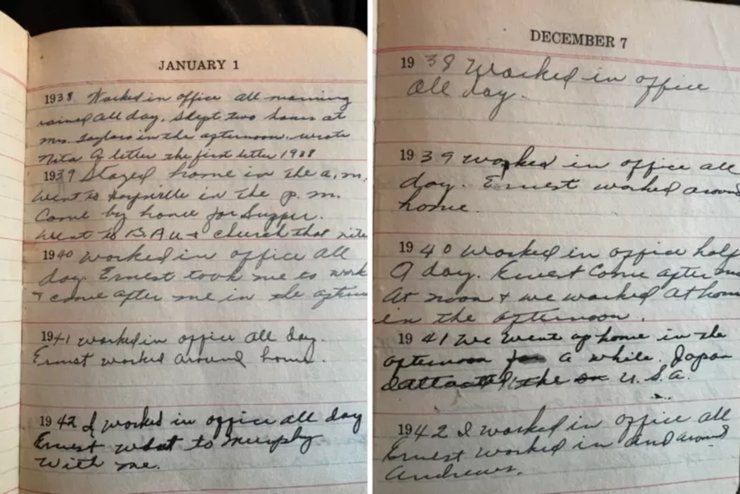 JANUARY 1
1938 Worked in office all morning
rained all day. Slept two hours at
Mrs. Taylors in the afternoon. wrote
Nita a letter the first letter 1938
1939 Stayed home in the a.m.
Went to in the p.m.
Come by home for Supper.
Went to B.A.U. & church that nite
1940 worked in office all
day. Ernest took me to work
& come after me in the
1941 worked in office all day.
Ernest worked around home.
1942 I worked in office all day
Ernest went to Murphy
with me.
DECEMBER 7
1938 Worked in office
all day.
1939 worked in office all
day. Ernest worked around
home.
1940 worked in office half
a day. Ernest come after me
at noon & we worked at home
in the afternoon.
1941 We went up home in the
afternoon for a while. Japan
the U.S.A.
1942 I worked in office all
Ernest worked in and around
Andrews.